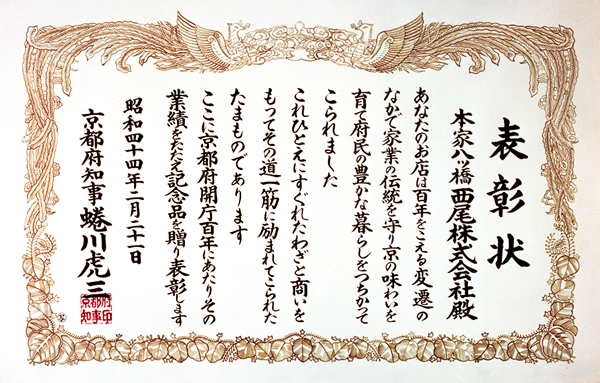 表彰状
本家八ツ橋西尾株式会社殿
あなたのお店は百年をこえる変遷の
なかで家業の伝統を守り京の味わいを
育て府民の豊かな暮らしをつちかって
こられました
これひとえにすぐれたわざと商いを
もってその道一筋に励まれてこられた
たまものであります
ここに京都府開庁百年にあたりその
業績をたたえ記念品を贈り表彰します
昭和四十四年二月二十一日
京都府知事 蜷川虎三